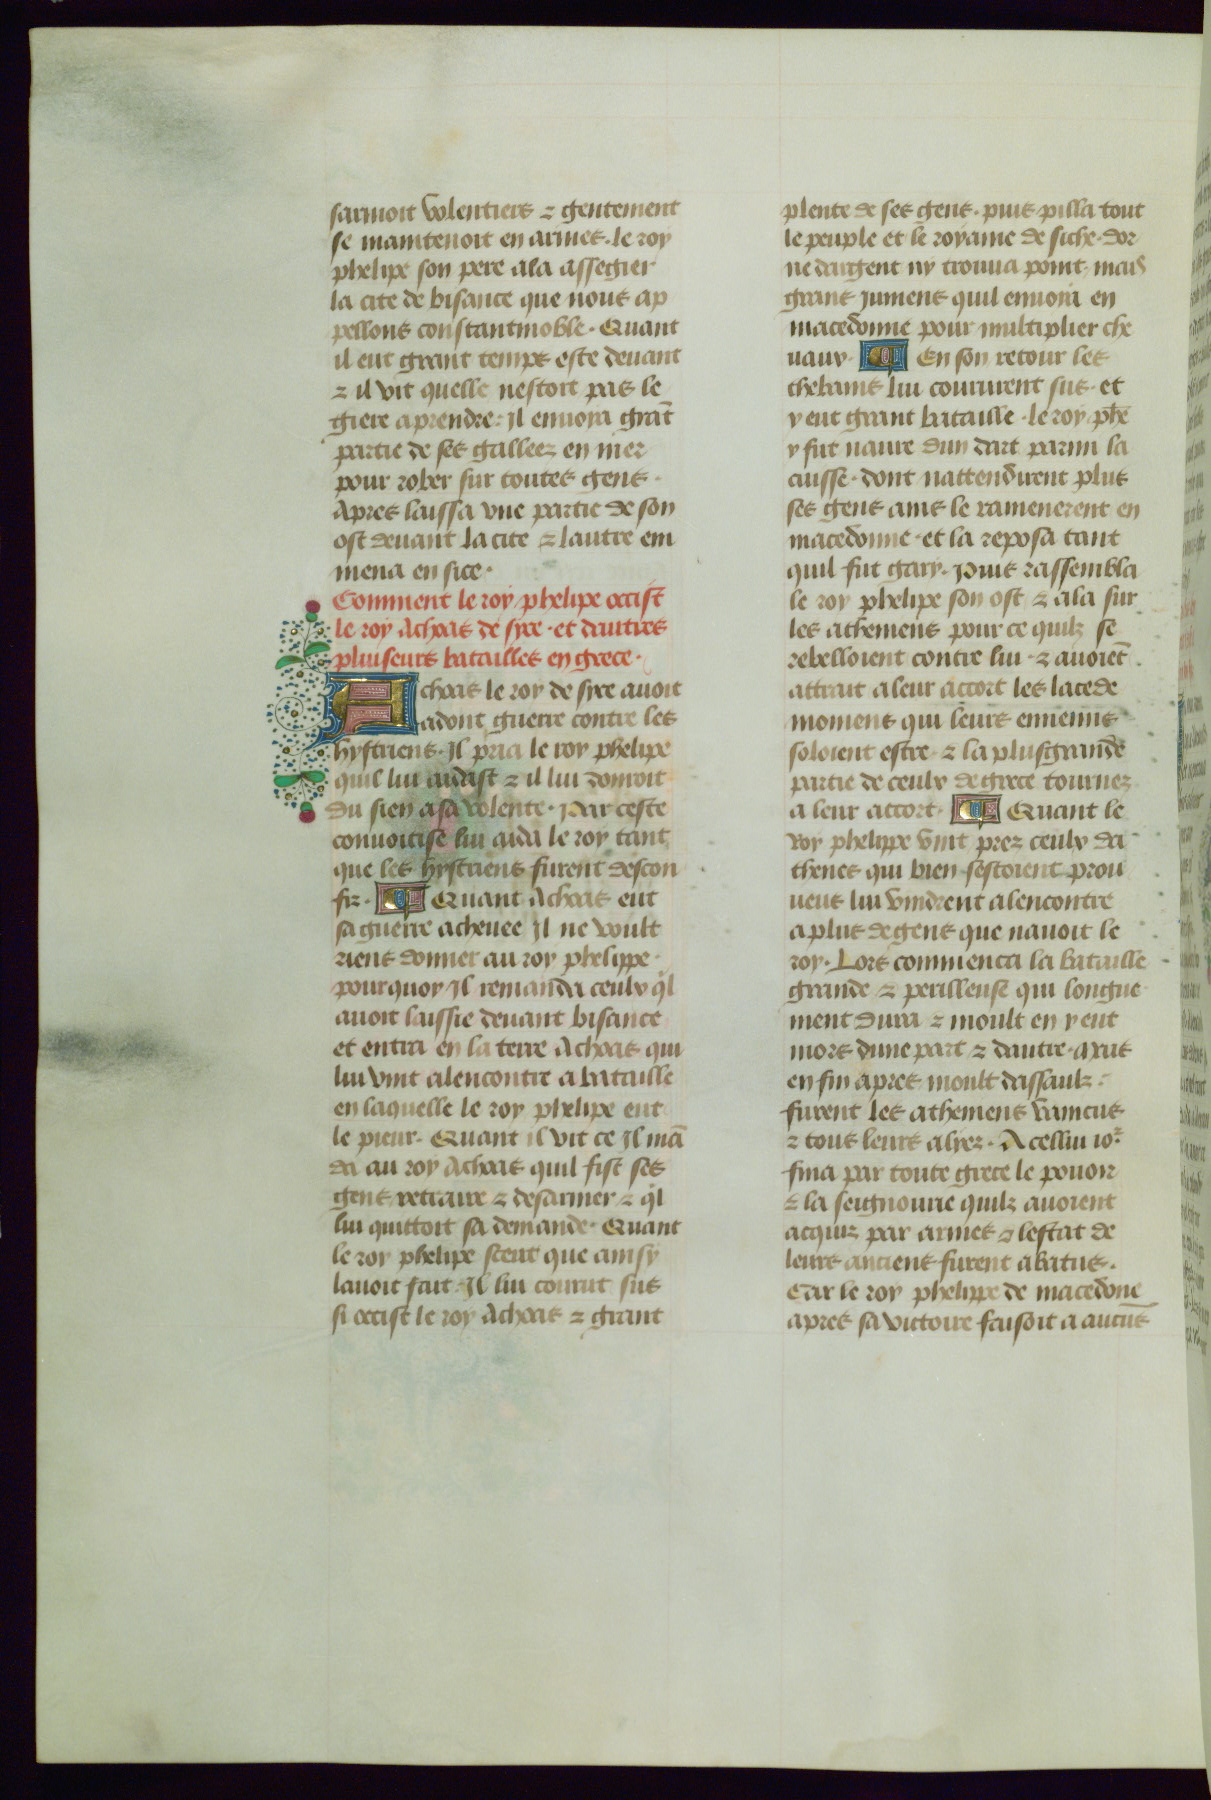 sarmoit volentiers ⁊ gentement
se maintenoit en armes. le roy
phelipe son pere ala assegier
la cite de bisance que nous ap
pellons constantinoble. Quant
il eut grant temps este devant
⁊ il vit quelle nestoit pas le
giere a prendre: Il envoia grāt
partie de ses galleez en mer
pour rober sur toutes gens.
Apres laissa une partie de son
ost devant la cite ⁊ lautre em
mena en sice.
Comment le roy phelipe occist
le roy Achoas de syce. et dautres
pluiseurs batailles en grece.
Achoas le roy de syce avoit
adont guerre contre les
hystriens. Il pria le roy phelipe
quil lui aidast ⁊ il lui donroit
du sien a sa volente. Par ceste
convoitise lui aida le roy tant
que les hystriens furent descon
fiz. Quant Achoas eut
sa guerre achevee Il ne voult
riens donner au roy phelippe.
pourquoy Il remanda ceulx ql̄
avoit laissie devant bisance
et entra en la terre Achoas qui
lui vint alencontre a bataille
en laquelle le roy phelipe eut
le pieur. Quant il vit ce Il mā
da au roy Achoas quil fist ses
gens retraire ⁊ desarmer ⁊ ql̄
lui quittoit sa demande. Quant
le roy phelipe sceut que ainsy
lavoit fait. Il lui courut sus
si occist le roy Achoas ⁊ grant
plente de ses gens. puis pilla tout
le peuple et le royaume de siche. dor
ne dargent ny trouva point, mais
grans jumens quil envoia en
macedonne pour multiplier che
vaux. En son retour les
thebains lui coururent sus. et
y eut grant bataille. le roy phē
y fut navre dun dart parmi la
cuisse. dont nattendirent plus
ses gens ains le ramenerent en
macedonne. et la reposa tant
quil fut gary. Puis rassembla
le roy phelipe son ost ⁊ ala sur
les atheniens pour ce quilz se
rebelloient contre lui. ⁊ avoiēt
attrait a leur accort les lacede
moniens qui leurs ennemis
soloient estre. ⁊ la plusgrande
partie de ceulx de grece tournez
a leur accort. Quant le
roy phelippe vint prez ceulx da
thenes qui bien sestoient prou
veus lui vindrent alencontre
a plus de gens que navoit le
roy. Lors commenca la bataille
grande ⁊ perilleuse qui longue
ment dura ⁊ moult en y eut
mors dune part ⁊ dautre. mais
en fin apres moult dassaulz:
furent les atheniens vaincus
⁊ tous leurs alyez. A cellui ioʳ
fina par toute grece le povoir
⁊ la seignourie quilz avoient
acquiz par armes ⁊ lestat de
leurs anciens furent abatus.
Car le roy phelippe de macedone
apres sa victoire faisoit a aucūs